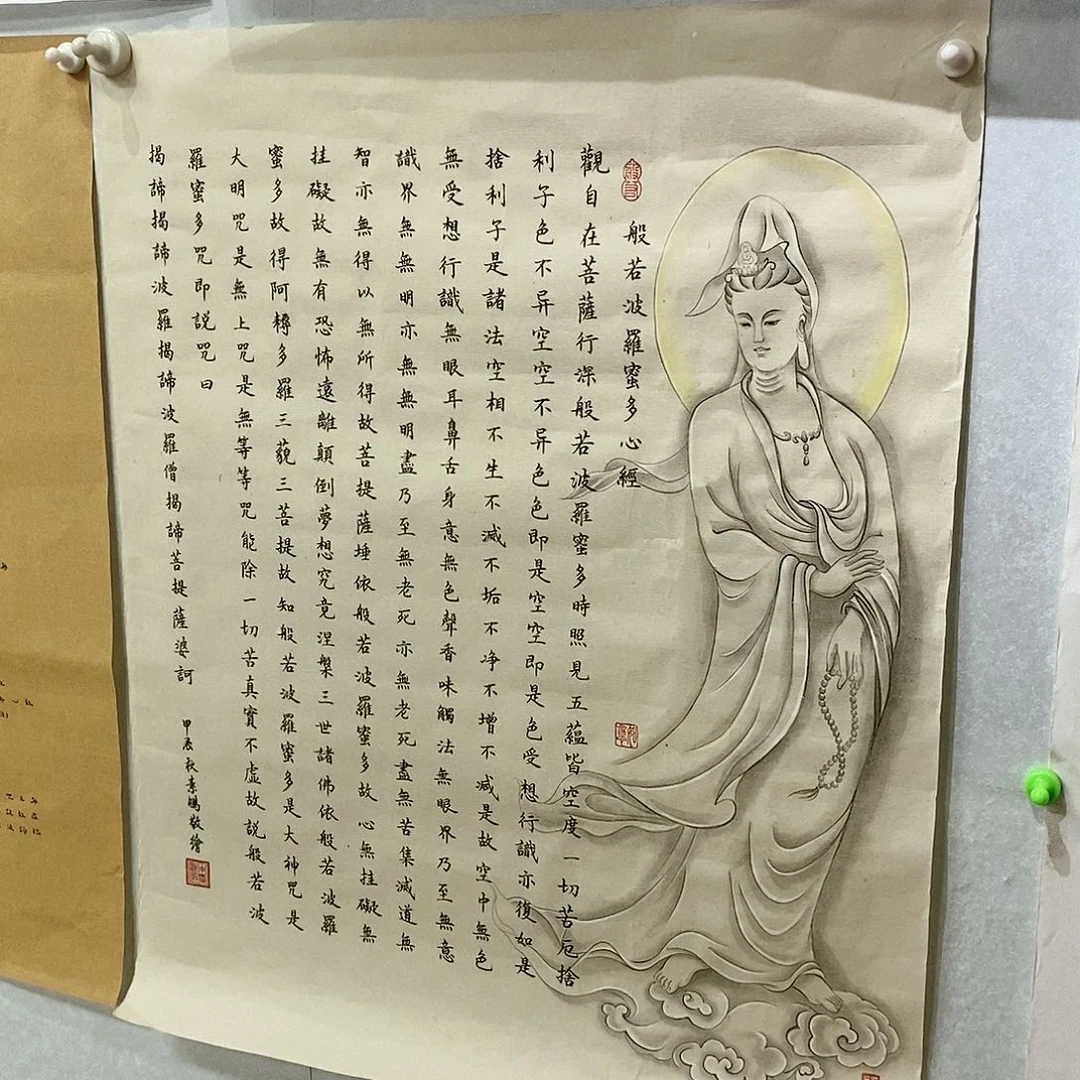 般若波羅蜜多心經
觀自在菩薩行深般若波羅蜜多時照見五蘊皆空度一切苦厄捨
利子色不异空空不异色色即是空空即是色受想行識亦復如是
捨利子是諸法空相不生不滅不垢不净不增不减是故空中無色
無受想行識無眼耳鼻舌身意無色聲香味觸法無眼界乃至無意
識界無無明亦無無明盡乃至無老死亦無老死盡無苦集滅道無
智亦無得以無所得故菩提薩埵依般若波羅蜜多故心無挂礙無
挂礙故無有恐怖遠離顛倒夢想究竟涅槃三世諸佛依般若波羅
蜜多故得阿耨多羅三藐三菩提故知般若波羅蜜多是大神咒是
大明咒是無上咒是無等等咒能除一切苦真實不虛故説般若波
羅蜜多咒即説咒曰
揭諦揭諦波羅揭諦波羅僧揭諦菩提薩婆訶
甲辰秋素鵬敬繪